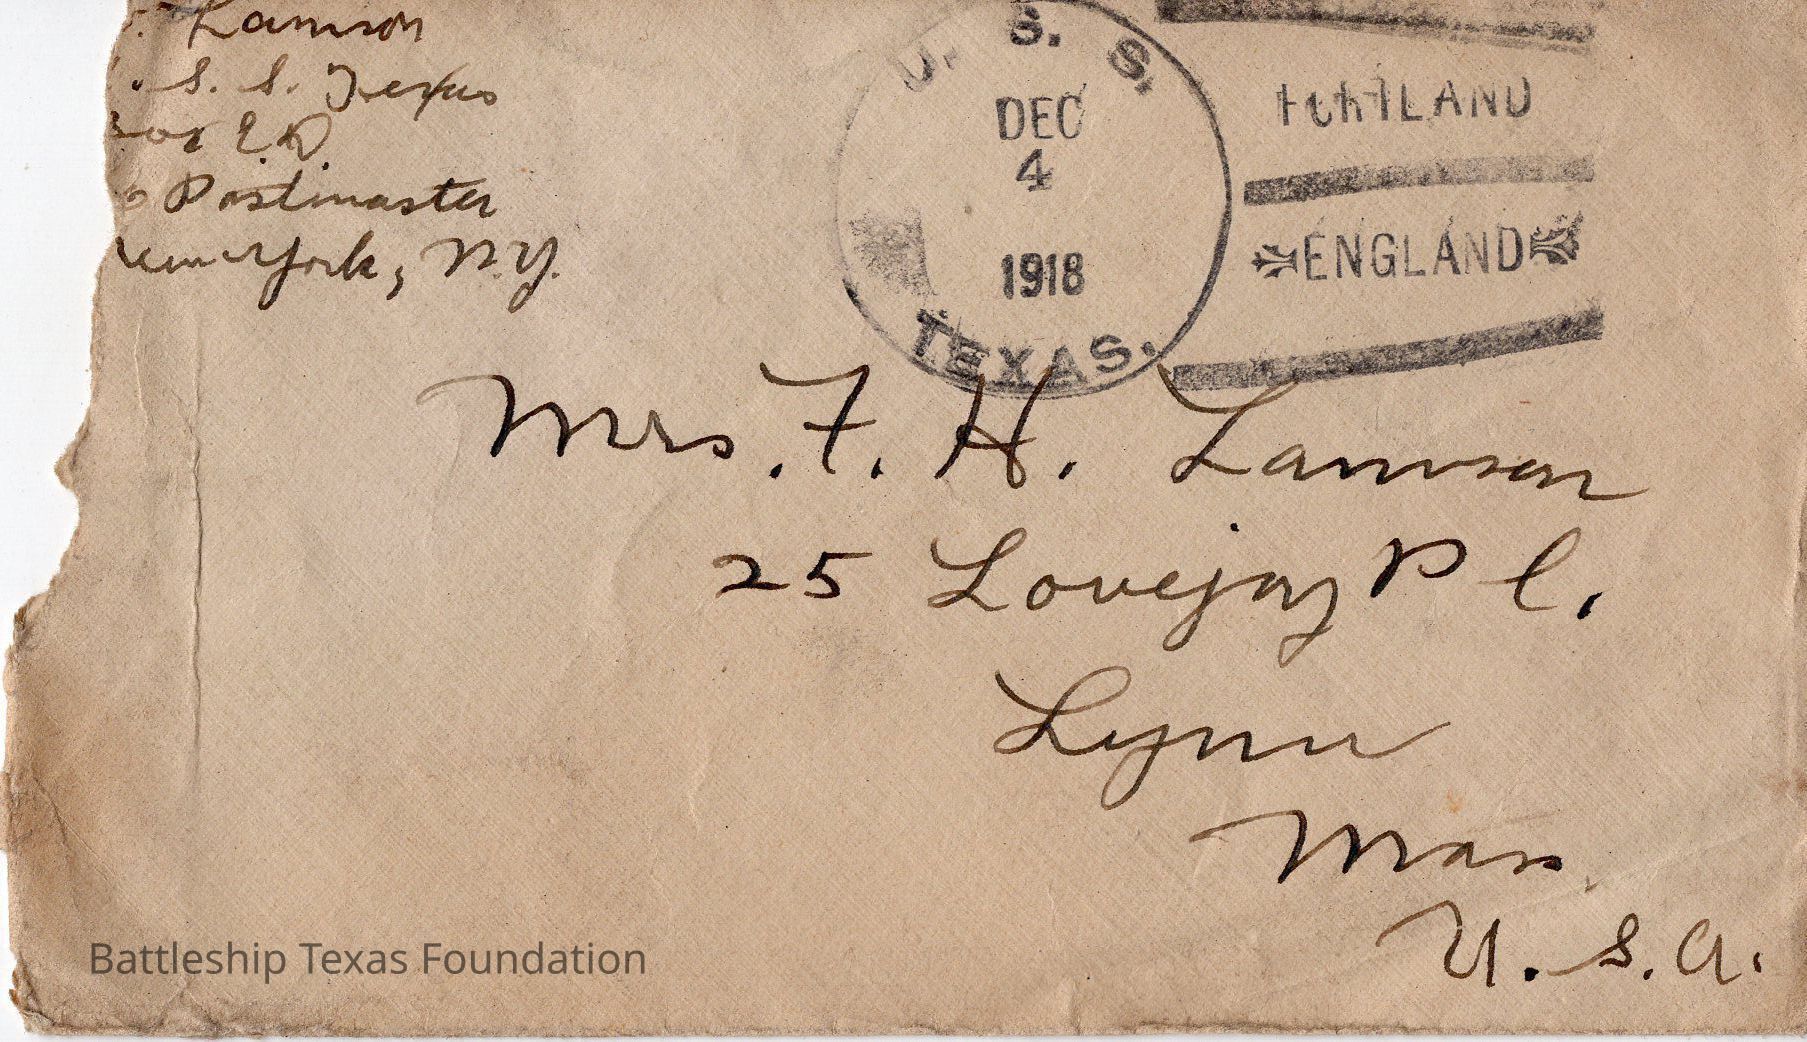 Lamson
. S. S. Texas
E.D.
Postmaster
New York, N.Y.
U. S. S.
DEC
4
1918
TEXAS.
PORTLAND
ENGLAND
Mrs. F. H. Lamson
25 Lovejoy Pl.
Lynn
Mass.
U. S. A.
Battleship Texas Foundation